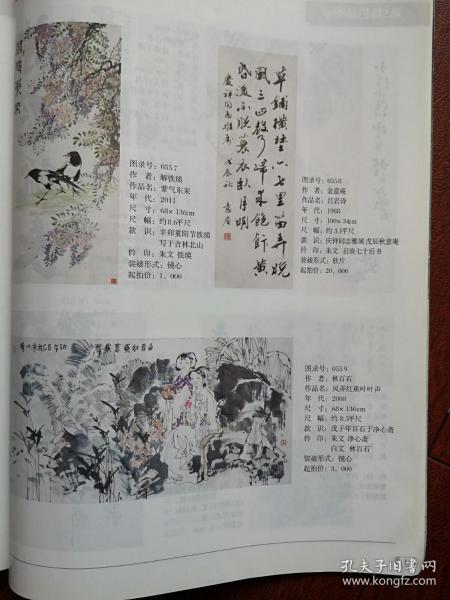 草铺横野六七里笛弄晚
风三四声归来饱饭黄
昏后不脱蓑衣卧月明
图录号：0557
作　者：解铁瑛
作品名：紫气东来
年　代：2011
尺　寸：68×136cm
尺　幅：约8.6平尺
款　识：辛卯重阳节铁瑛
写于吉林北山
钤　印：朱文 铁瑛
装裱形式：镜心
起拍价：1，000
图录号：0558
作　者：金意庵
作品名：吕岩诗
年　代：1988
尺　寸：100×34cm
尺　幅：约3.1平尺
款　识：庆祥同志雅属 戊辰秋意庵
钤　印：朱文 启族七十后书
装裱形式：软片
起拍价：20，000
图录号：0559
作　者：林百石
作品名：风弄红蕉叶叶声
年　代：2008
尺　寸：68×136cm
尺　幅：约8.5平尺
款　识：戊子年百石于净心斋
钤　印：朱文 净心斋
白文 林百石
装裱形式：镜心
起拍价：3，000
孔夫子旧书网
www.kongfz.com